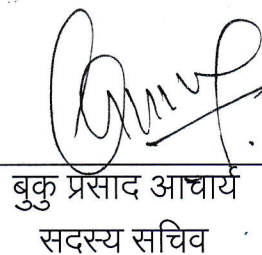 बुकु प्रसाद आचार्य
सदस्य सचिव